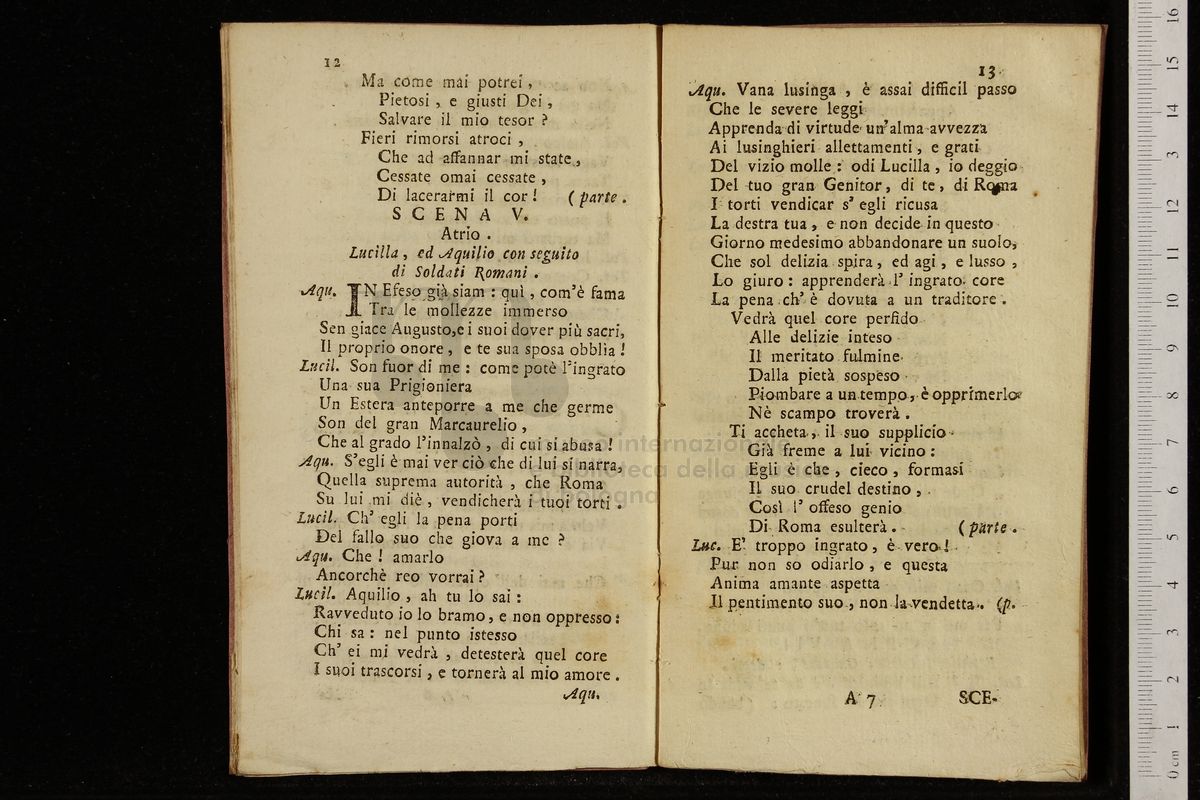 12
Ma come mai potrei,
Pietosi, e giusti Dei,
Salvare il mio tesor?
Fieri rimorsi atroci,
Che ad affannar mi state,
Cessate omai cessate,
Di lacerarmi il cor! (parte.
SCENA V.
Atrio.
Lucilla, ed Aquilio con seguito
di Soldati Romani.
Aqu. IN Efeso già siam: quì, com'è fama
Tra le mollezze immerso
Sen giace Augusto, e i suoi dover più sacri,
Il proprio onore, e te sua sposa obblia!
Lucil. Son fuor di me: come potè l'ingrato
Una sua Prigioniera
Un Estera anteporre a me che germe
Son del gran Marcaurelio,
Che al grado l'innalzò, di cui si abusa!
Aqu. S'egli è mai ver ciò che di lui si narra,
Quella suprema autorità, che Roma
Su lui mi diè, vendicherà i tuoi torti.
Lucil. Ch' egli la pena porti
Del fallo suo che giova a me?
Aqu. Che! amarlo
Ancorchè reo vorrai?
Lucil. Aquilio, ah tu lo sai:
Ravveduto io lo bramo, e non oppresso:
Chi sa: nel punto istesso
Ch' ei mi vedrà, detesterà quel core
I suoi trascorsi, e tornerà al mio amore.
Aqu.
13
Aqu. Vana lusinga, è assai difficil passo
Che le severe leggi
Apprenda di virtude un'alma avvezza
Ai lusinghieri allettamenti, e grati
Del vizio molle: odi Lucilla, io deggio
Del tuo gran Genitor, di te, di Roma
I torti vendicar s' egli ricusa
La destra tua, e non decide in questo
Giorno medesimo abbandonare un suolo,
Che sol delizia spira, ed agi, e lusso,
Lo giuro: apprenderà l' ingrato core
La pena ch' è dovuta a un traditore.
Vedrà quel core perfido
Alle delizie inteso
Il meritato fulmine
Dalla pietà sospeso
Piombare a un tempo, è opprimerlo
Nè scampo troverà.
Ti accheta, il suo supplicio
Già freme a lui vicino:
Egli è che, cieco, formasi
Il suo crudel destino,
Così l' offeso genio
Di Roma esulterà. (parte.
Luc. E' troppo ingrato, è vero!
Pur non so odiarlo, e questa
Anima amante aspetta
Il pentimento suo, non la vendetta. (p.
A 7 SCE-
internazionale
biblioteca della
di bologna
0 cm 1 2 3 4 5 6 7 8 9 10 11 12 13 14 15 16